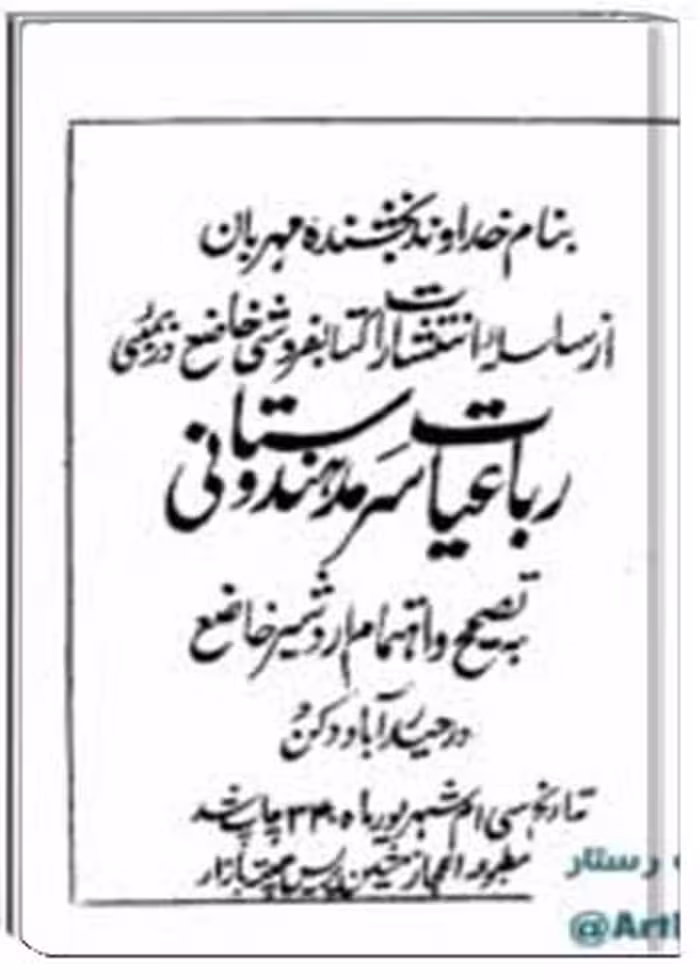 بنام خداوند بخشنده مهربان
از سلسله انتشارات کتابفروشی خاضع در بمبئی
رباعیات سرمد هندوستانی
به تصحیح و اهتمام اردشیر خاضع
در حیدرآباد دکن
بتاریخ سی ام شهریور ماه چاپ شد
مطبوعه اعجاز مشین پریس چهته بازار
رستار
@Arti